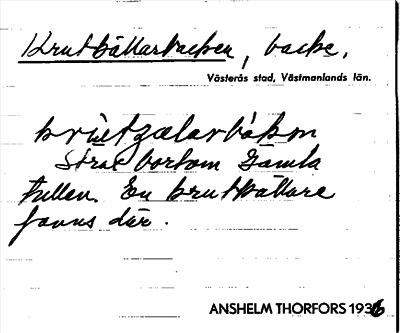 Krutkällarbacken, backe.
Västerås stad, Västmanlands län.
krùtzælarbákən
Strax bortom Gamla
tullen. En krutkällare
fanns där.
ANSHELM THORFORS 1936